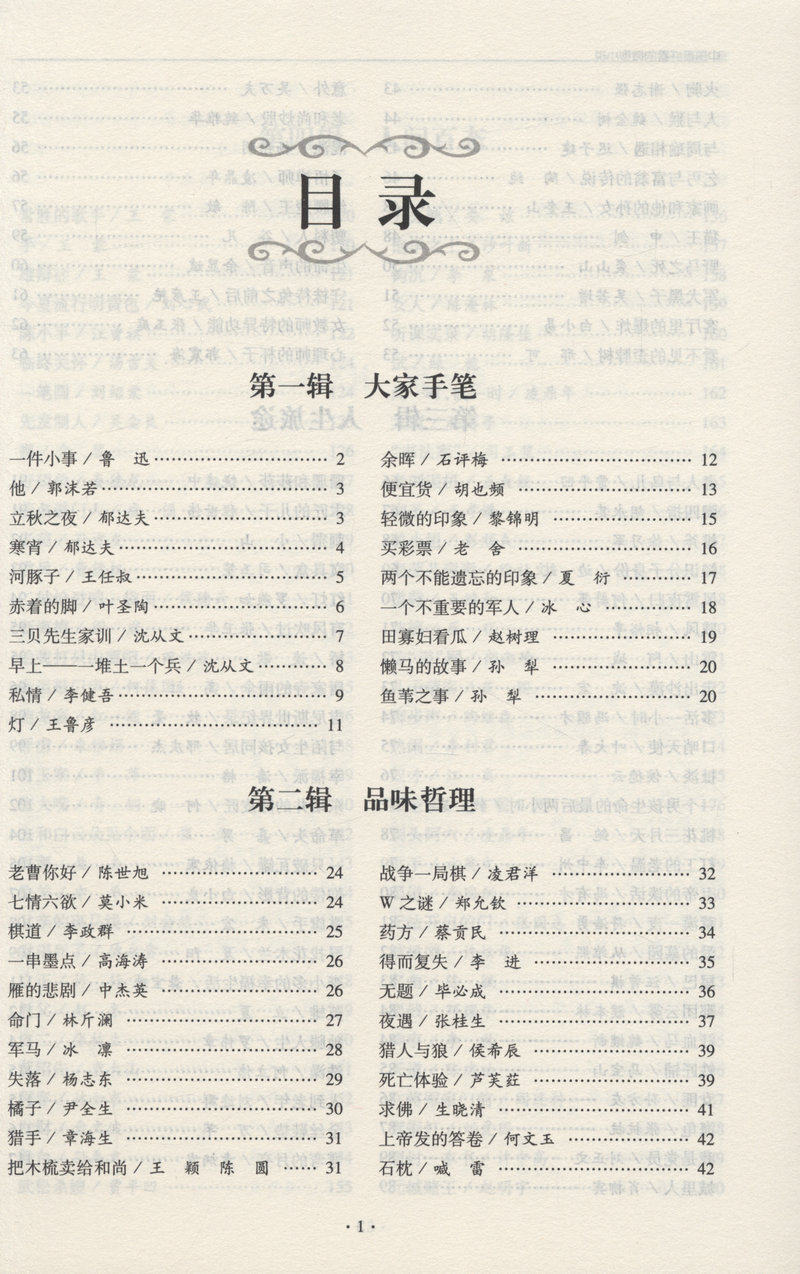 目录
第一辑 大家手笔
一件小事/鲁 迅 ………… 2
他/郭沫若 ………… 3
立秋之夜/郁达夫 ………… 3
寒宵/郁达夫 ………… 4
河豚子/王任叔 ………… 5
赤着的脚/叶圣陶 ………… 6
三贝先生家训/沈从文 ………… 7
早上——一堆土一个兵/沈从文 ………… 8
私情/李健吾 ………… 9
灯/王鲁彦 ………… 11
余晖/石评梅 ………… 12
便宜货/胡也频 ………… 13
轻微的印象/黎锦明 ………… 15
买彩票/老 舍 ………… 16
两个不能遗忘的印象/夏 衍 ………… 17
一个不重要的军人/冰 心 ………… 18
田寡妇看瓜/赵树理 ………… 19
懒马的故事/孙 犁 ………… 20
鱼苇之事/孙 犁 ………… 20
第二辑 品味哲理
老曹你好/陈世旭 ………… 24
七情六欲/莫小米 ………… 24
棋道/李政群 ………… 25
一串墨点/高海涛 ………… 26
雁的悲剧/中杰英 ………… 26
命门/林斤澜 ………… 27
军马/冰 凛 ………… 28
失落/杨志东 ………… 29
橘子/尹全生 ………… 30
猎手/章海生 ………… 31
把木梳卖给和尚/王 颖 陈 圆 …… 31
战争一局棋/凌君洋 ………… 32
W之谜/郑允钦 ………… 33
药方/蔡贡民 ………… 34
得而复失/李 进 ………… 35
无题/毕必成 ………… 36
夜遇/张桂生 ………… 37
猎人与狼/侯希辰 ………… 39
死亡体验/芦芙荭 ………… 39
求佛/生晓清 ………… 41
上帝发的答卷/何文玉 ………… 42
石枕/臧 雷 ………… 42
·1·